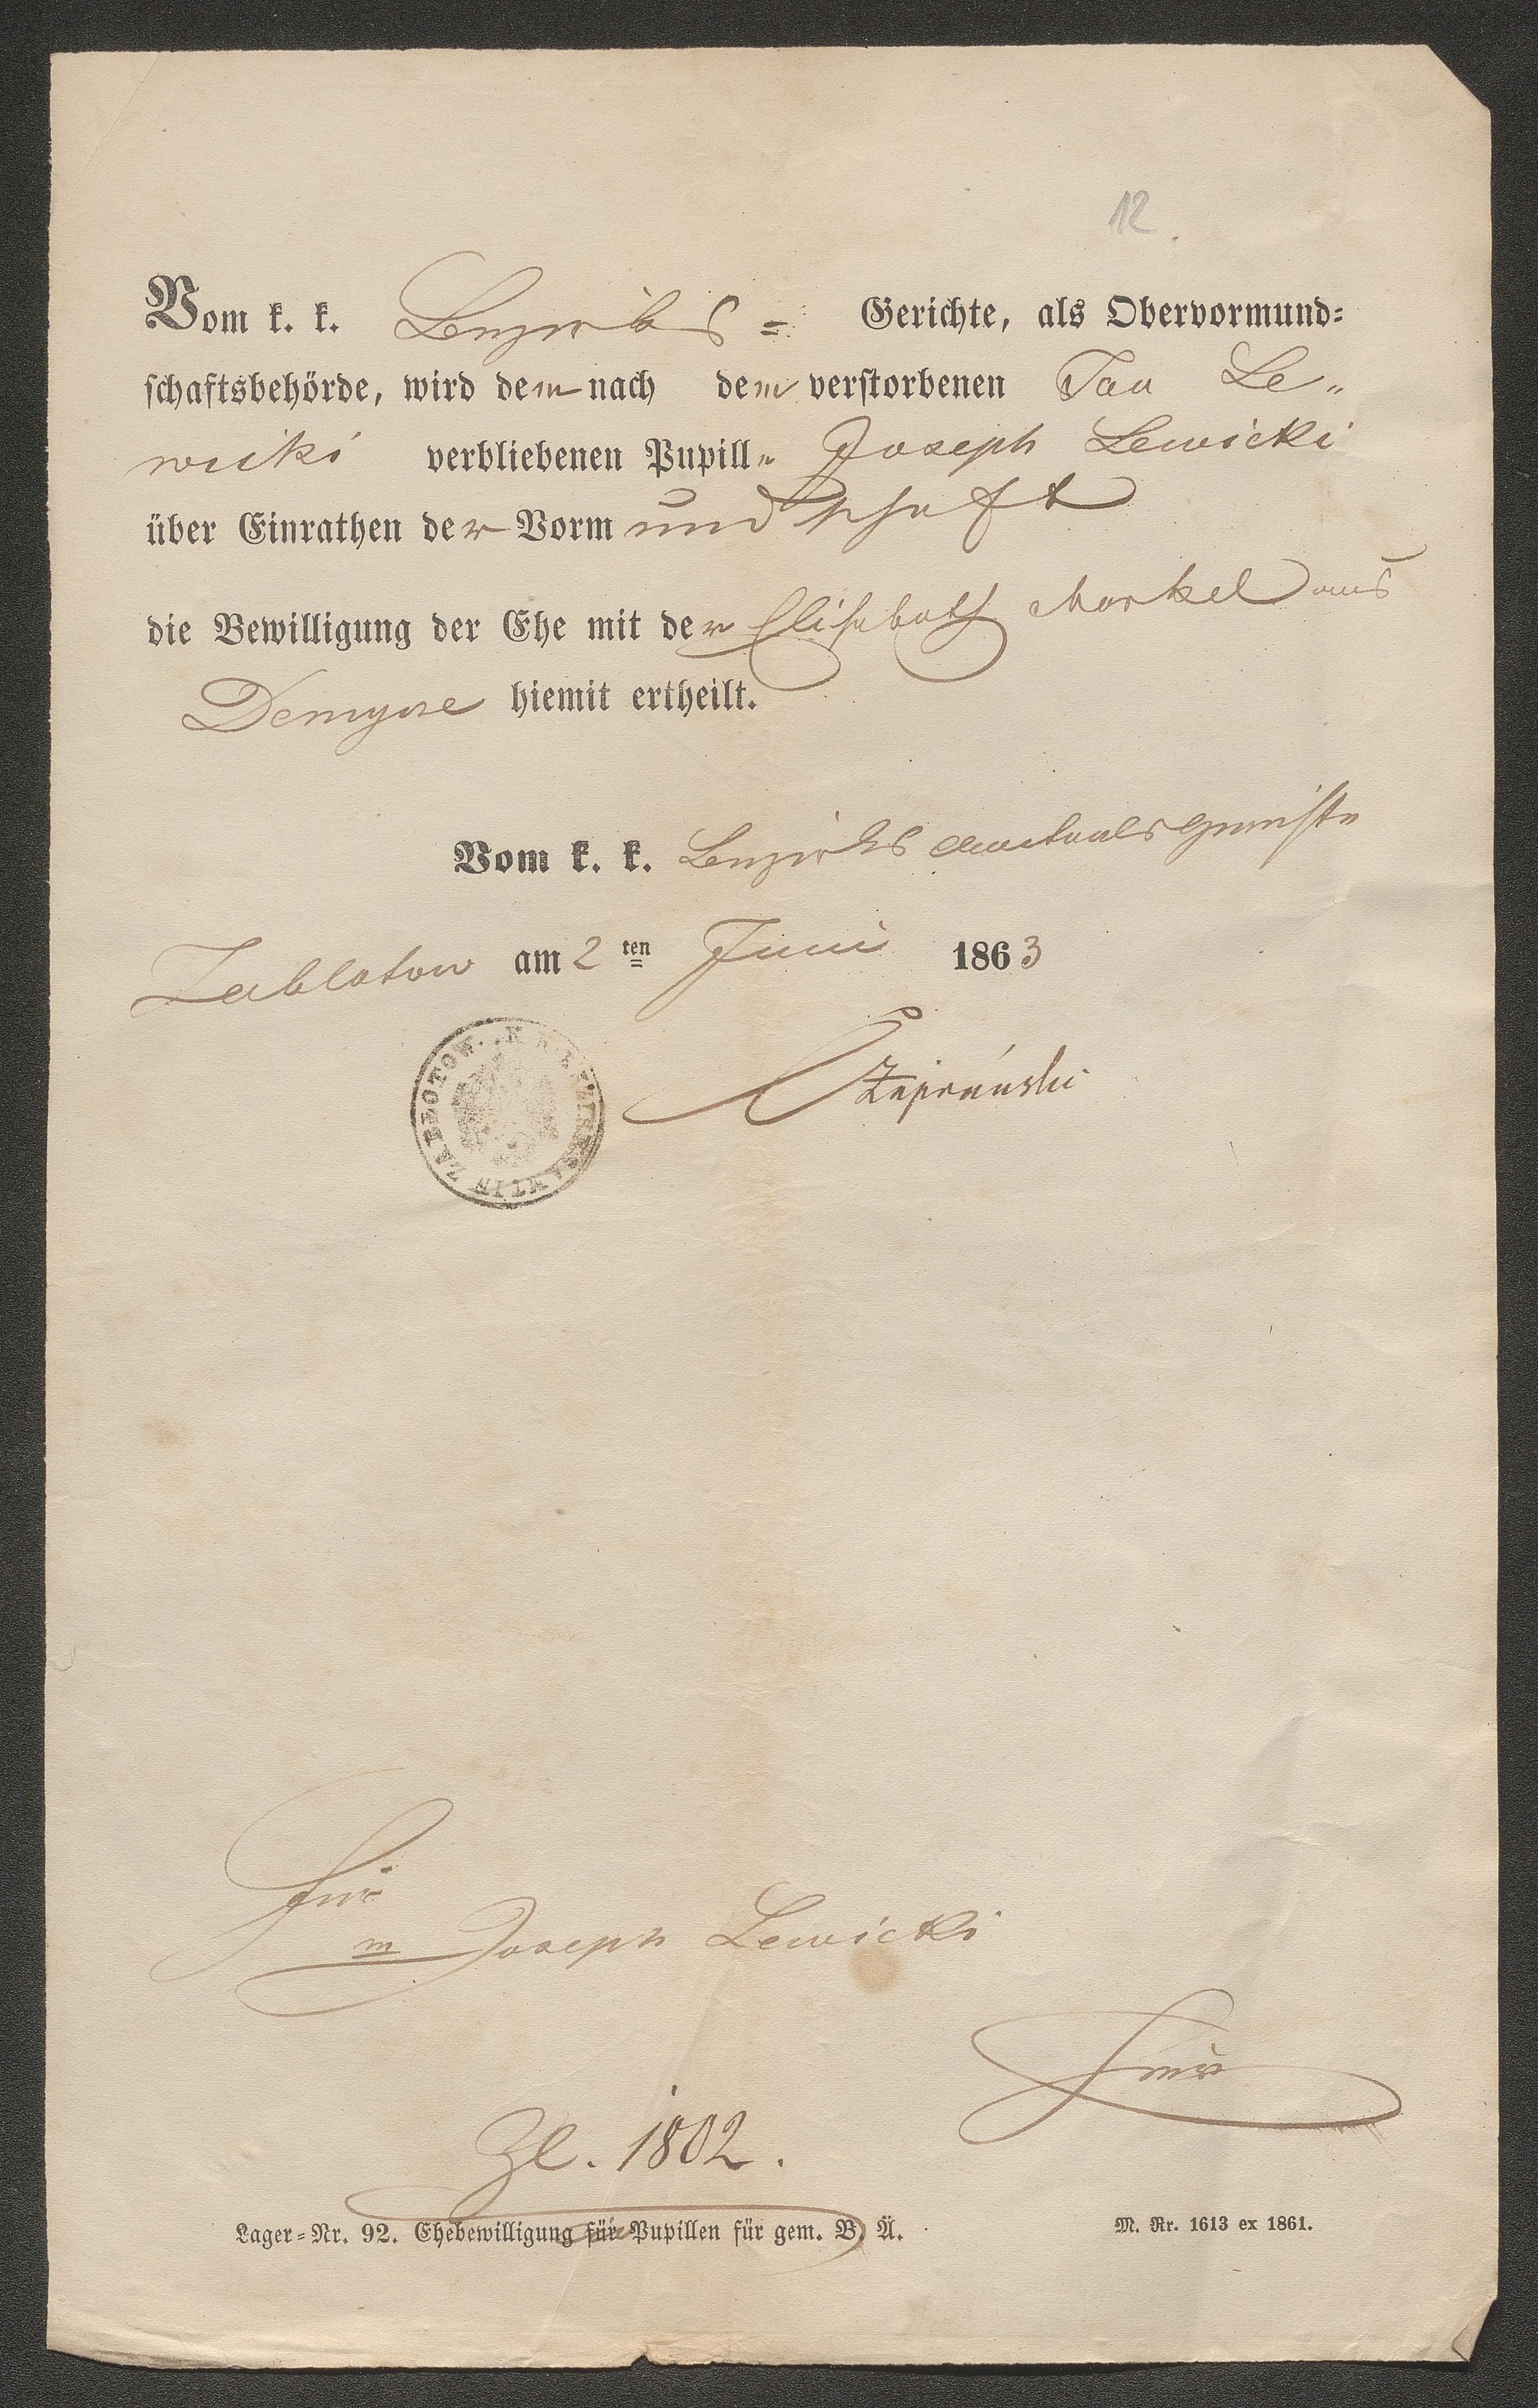 12.
Vom k. k. Bezirks = Gerichte, als Obervormund=
schaftsbehörde, wird dem nach dem verstorbenen Jan Le„
wicki verbliebenen Pupill„ Joseph Lewicki
über Einrathen der Vormundschaft
die Bewilligung der Ehe mit der Elisabeth Markel aus
Demycze hiemit ertheilt.
Vom k. k. Bezirksamte als Gerichte
Zablotow am 2 ten Juni 1863
ZABŁOTOW. K. K. BEZIRKSAMT IN
Für
Joseph Lewicki
Zl. 1802.
Lager=Nr. 92. Ehebewilligung für Pupillen für gem. B. Ä.
M. Nr. 1613 ex 1861.